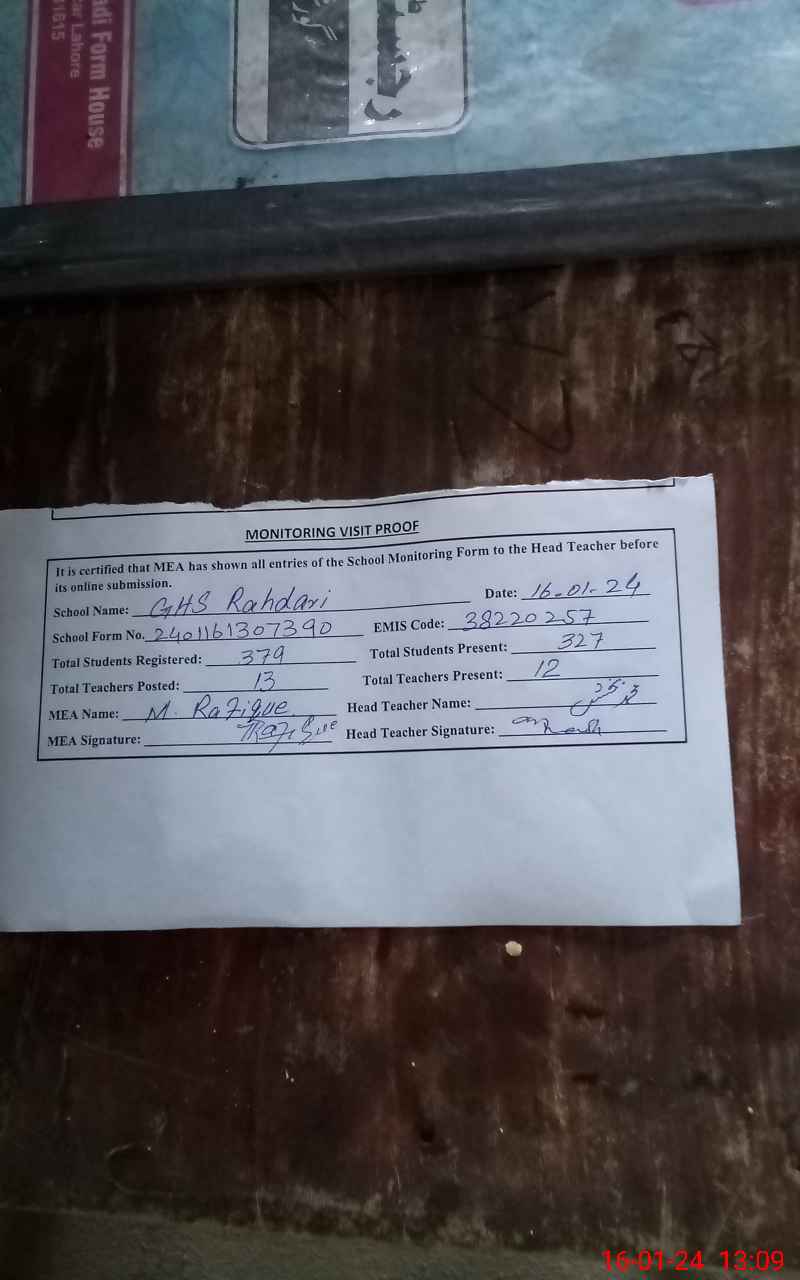 adi Form House
zar Lahore
MONITORING VISIT PROOF
It is certified that MEA has shown all entries of the School Monitoring Form to the Head Teacher before
its online submission.
School Name: GHS Rahdari Date: 16-01-24
School Form No. 2401161307390 EMIS Code: 38220257
Total Students Registered: 379 Total Students Present: 327
Total Teachers Posted: 13 Total Teachers Present: 12
MEA Name: M. Rafique Head Teacher Name:
MEA Signature: Rafique Head Teacher Signature:
16-01-24 13:09